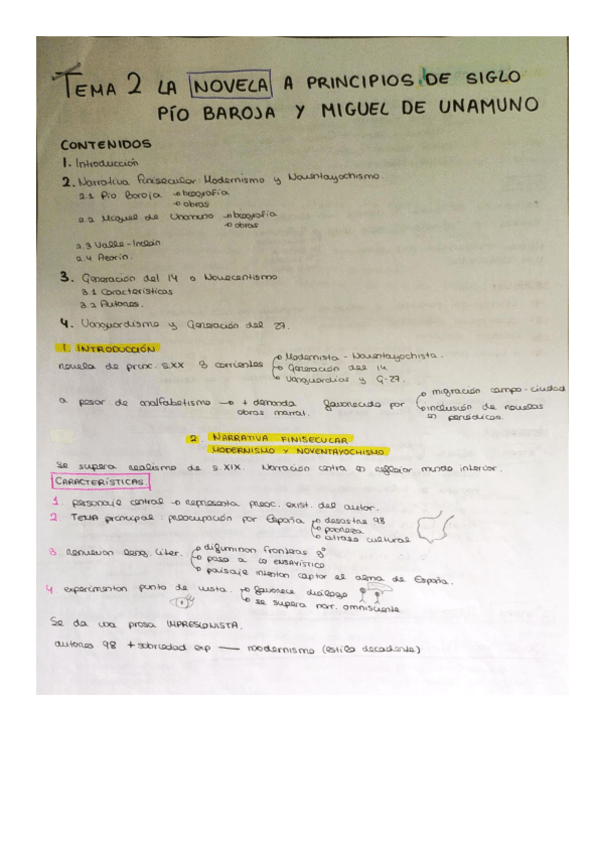 TEMA 2 LA NOVELA A PRINCIPIOS DE SIGLO
PÍO BAROJA Y MIGUEL DE UNAMUNO
CONTENIDOS
1. Introducción
2. Narrativa finisecular: Modernismo y Noventayochismo.
2.1 Pío Baroja → biografía
→ obras
2.2 Miguel de Unamuno → biografía
→ obras
2.3 Valle-Inclán
2.4 Azorín.
3. Generación del 14 o Novecentismo
3.1 Características
3.2 Autores.
4. Vanguardismo y Generación del 27.
1. INTRODUCCIÓN
novela de princ. s.XX 3 corrientes → Modernista - Noventayochista.
→ Generación del 14
→ Vanguardias y G-27.
a pesar de analfabetismo → + demanda obras narrat. favorecido por → migración campo-ciudad
→ inclusión de novelas en periódicos.
2. NARRATIVA FINISECULAR
MODERNISMO Y NOVENTAYOCHISMO
Se supera realismo de s.XIX. Narración centra en reflejar mundo interior.
CARACTERÍSTICAS
1. personaje central → representa preoc. exist. del autor.
2. TEMA principal: preocupación por España → desastre 98
→ pobreza
→ atraso cultural
3. Renuevan leng. liter. → difuminan fronteras gº
→ paso a lo ENSAYÍSTICO
→ paisaje intentan captar el alma de España.
4. experimentan punto de vista. → favorece diálogo
→ se supera narr. omnisciente
Se da una prosa IMPRESIONISTA.
autores 98 + sobriedad exp — modernismo (estilo decadente)